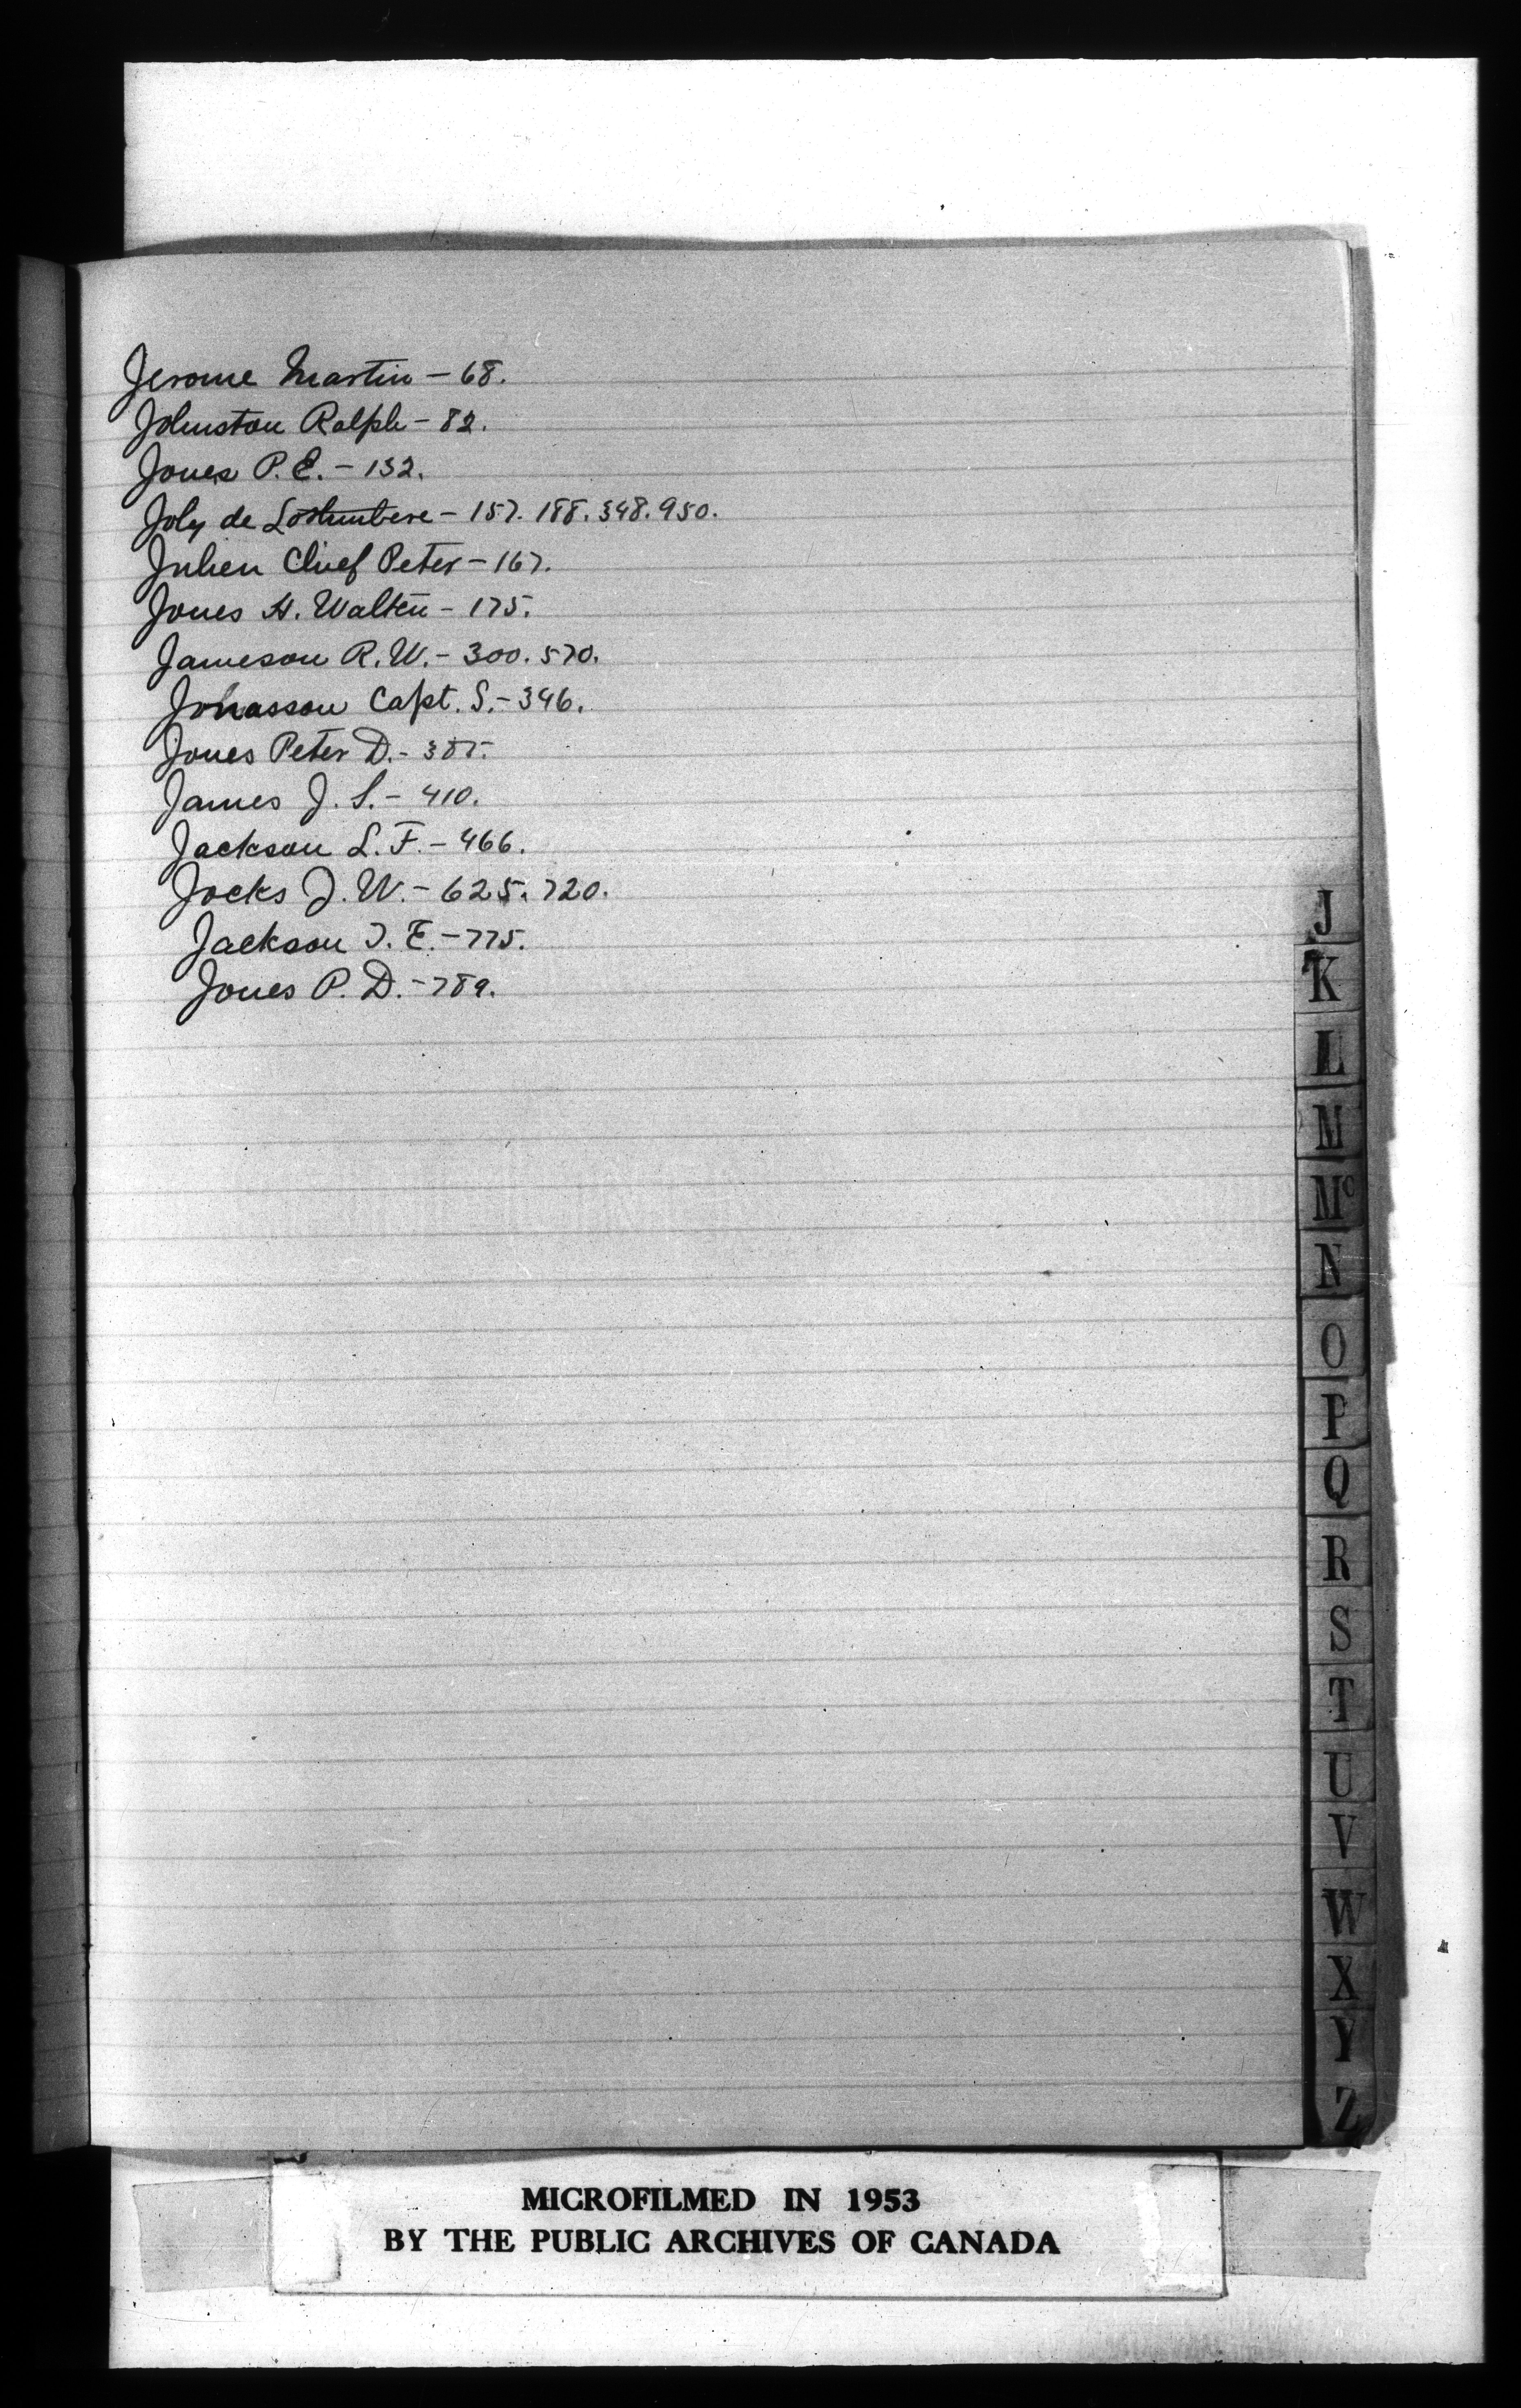 Jerome Martin - 68.
Johnston Ralph - 82.
Jones P.E. - 132.
Joly de Lotbiniere - 157. 188. 348. 950.
Julien Chief Peter - 167.
Jones H. Walter - 175.
Jameson R.W. - 300. 570.
Jonasson Capt. S. - 346.
Jones Peter D. - 385.
James J. S. - 410.
Jackson L. F. - 466.
Jocks J. W. - 625. 720.
Jackson T. E. - 775.
Jones P. D. - 789.
J
K
L
M
Mc
N
O
P
Q
R
S
T
U
V
W
X
Y
Z
MICROFILMED IN 1953
BY THE PUBLIC ARCHIVES OF CANADA